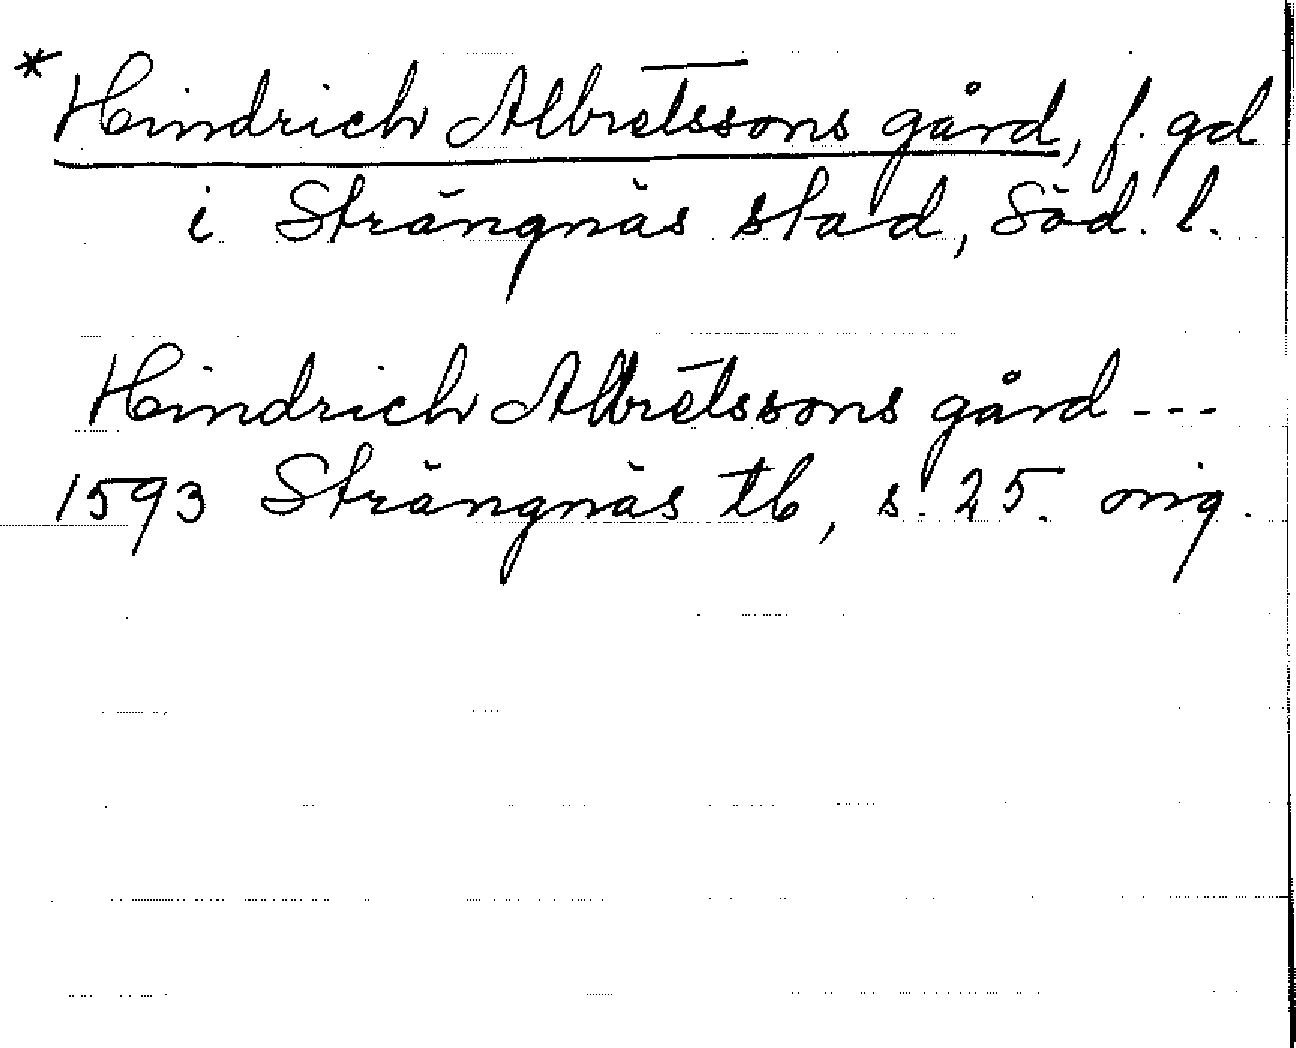 * Hindrich Albretssons gård, f. gd
i Strängnäs stad, Söd. l.
Hindrich Albretssons gård ---
1593 Strängnäs tb, s. 25. orig.